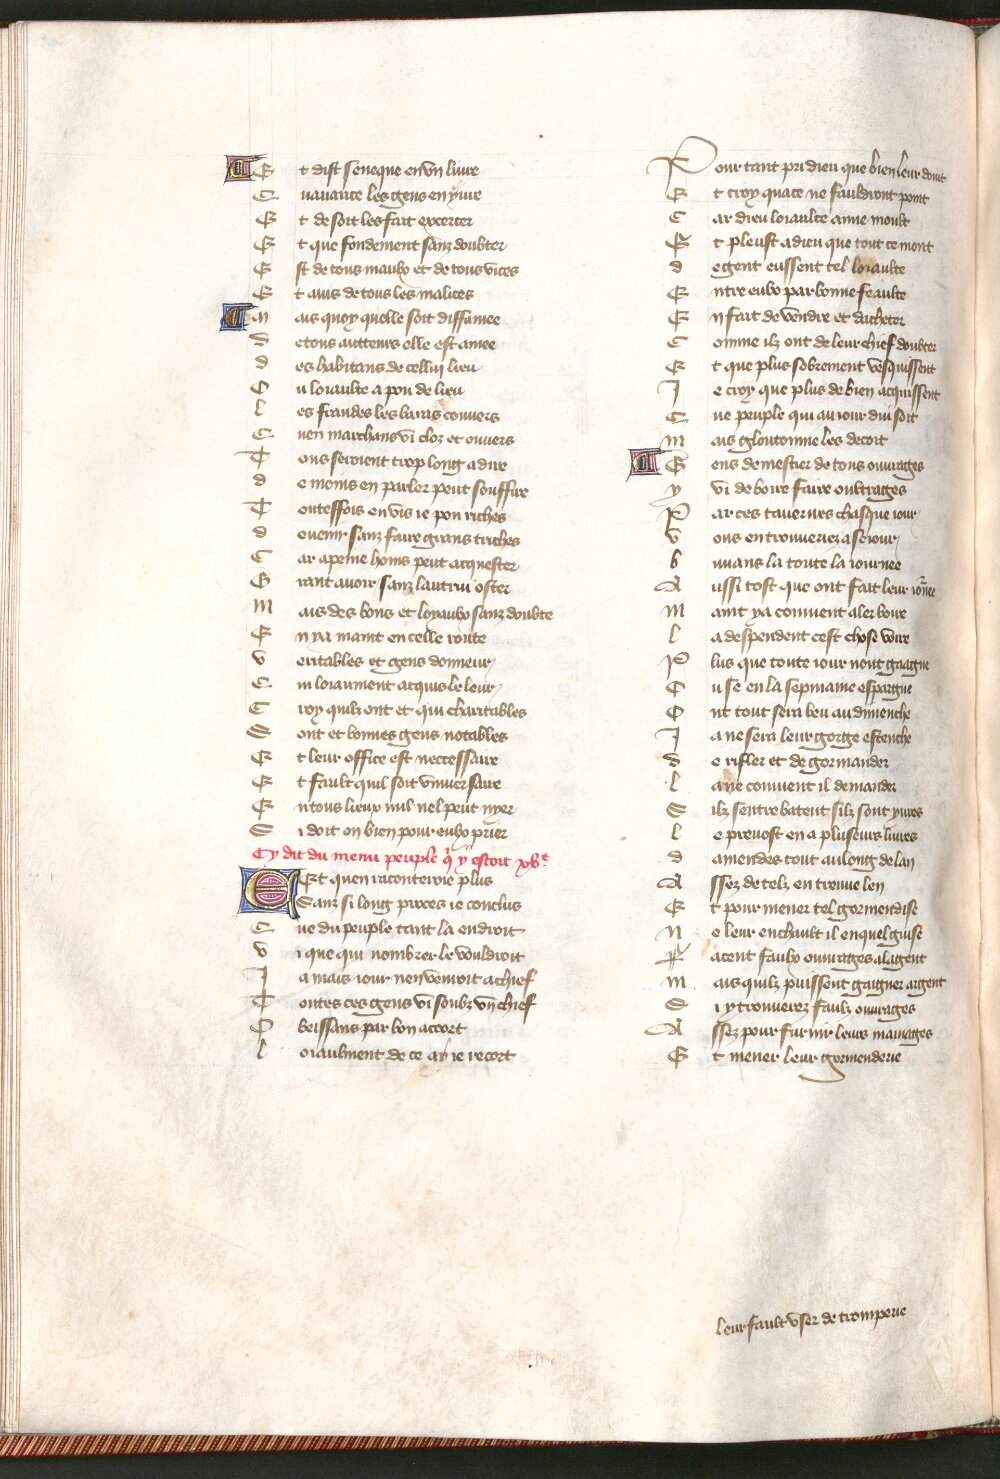 Et dist seneque en vn liure
Quauarice les gens enyure
Et de soit les fait exerciter
Et que fondement sanz doubter
Est de tous maulx et de tous vices
Et amis de tous les malices
Mais quoy quelle soit diffamee
De tous autteurs elle est amee
Des habitans de cellui lieu
Ou loiaulte a pou de lieu
Les fraudes les baras couuers
Quen marchans vi cloz et ouuers
Tous seroient trop long a dire
De meins en parler peut souffire
Touteffois en vis ie pou riches
Deuenir sanz faire grans triches
Car a peine homs peut acquester
Grant auoir sanz lautrui oster
Mais des bons et loyaulx sanz doubte
En ya maint en celle route
Veritables et gens donneur
Qui loiaument acquis le leur
Croy quilz ont et qui charitables
Sont et bonnes gens notables
Et leur office est neccessaire
Et fault quil soit vniuersaire
En tous lieux nul nel peut nyer
Si doit on bien pour eulx prier
Cy dit du menu peuple q̃ y estoit xvᵉ
Et quen raconteroie plus
Sanz si long proces ie conclus
Que du peuple tant la endroit
Vi que qui nombrer le vouldroit
Jamais iour nen venroit a chief
Toutes ces gens vi soubz vn chief
Obeissans par bon accort
Loiaulment de ce ay ie recort
Pour tant pri dieu que bien leur doint
Et croy quace ne fauldront point
Car dieu loiaulte aime moult
Et pleust a dieu que tout ce mont
De gent eussent tel loiaulte
Entre eulx par bonne feaulte
En fait de vendre et dacheter
Comme ilz ont de leur chief doubter
Et que plus sobrement vesquissent
Je croy que plus de bien acquissent
Que peuple qui au iour dui soit
Mais gloutonnie les decoit
Gens de mestier de tous ouurages
Y vi de boire faire oultrages
Par ces tauernes chasque iour
Vous en trouueriez a seiour
Buuans la toute la iournee
Aussi tost que ont fait leur iornee
Maint ya conuient aler boire
La despendent cest chose voire
Plus que toute iour nont gaagne
Ou se en la sepmaine espargne
Ont tout sera beu au dimenche
Ja ne sera leur gorge estenche
De rifler et de gormander
La ne conuient il demander
Silz sentrebatent silz sont yures
Le preuost en a pluseurs liures
Damendes tout au long de lan
Assez de telz en treuue len
Et pour mener tel gormendise
Ne leur enchault il en quel guise
Facent faulx ouurages alagent
Mais quilz puissent gaigner argent
Si y trouuerez faulz ouurages
Assez pour furnir leurs mainages
Et mener leur gormenderie
leur fault vser de tromperie